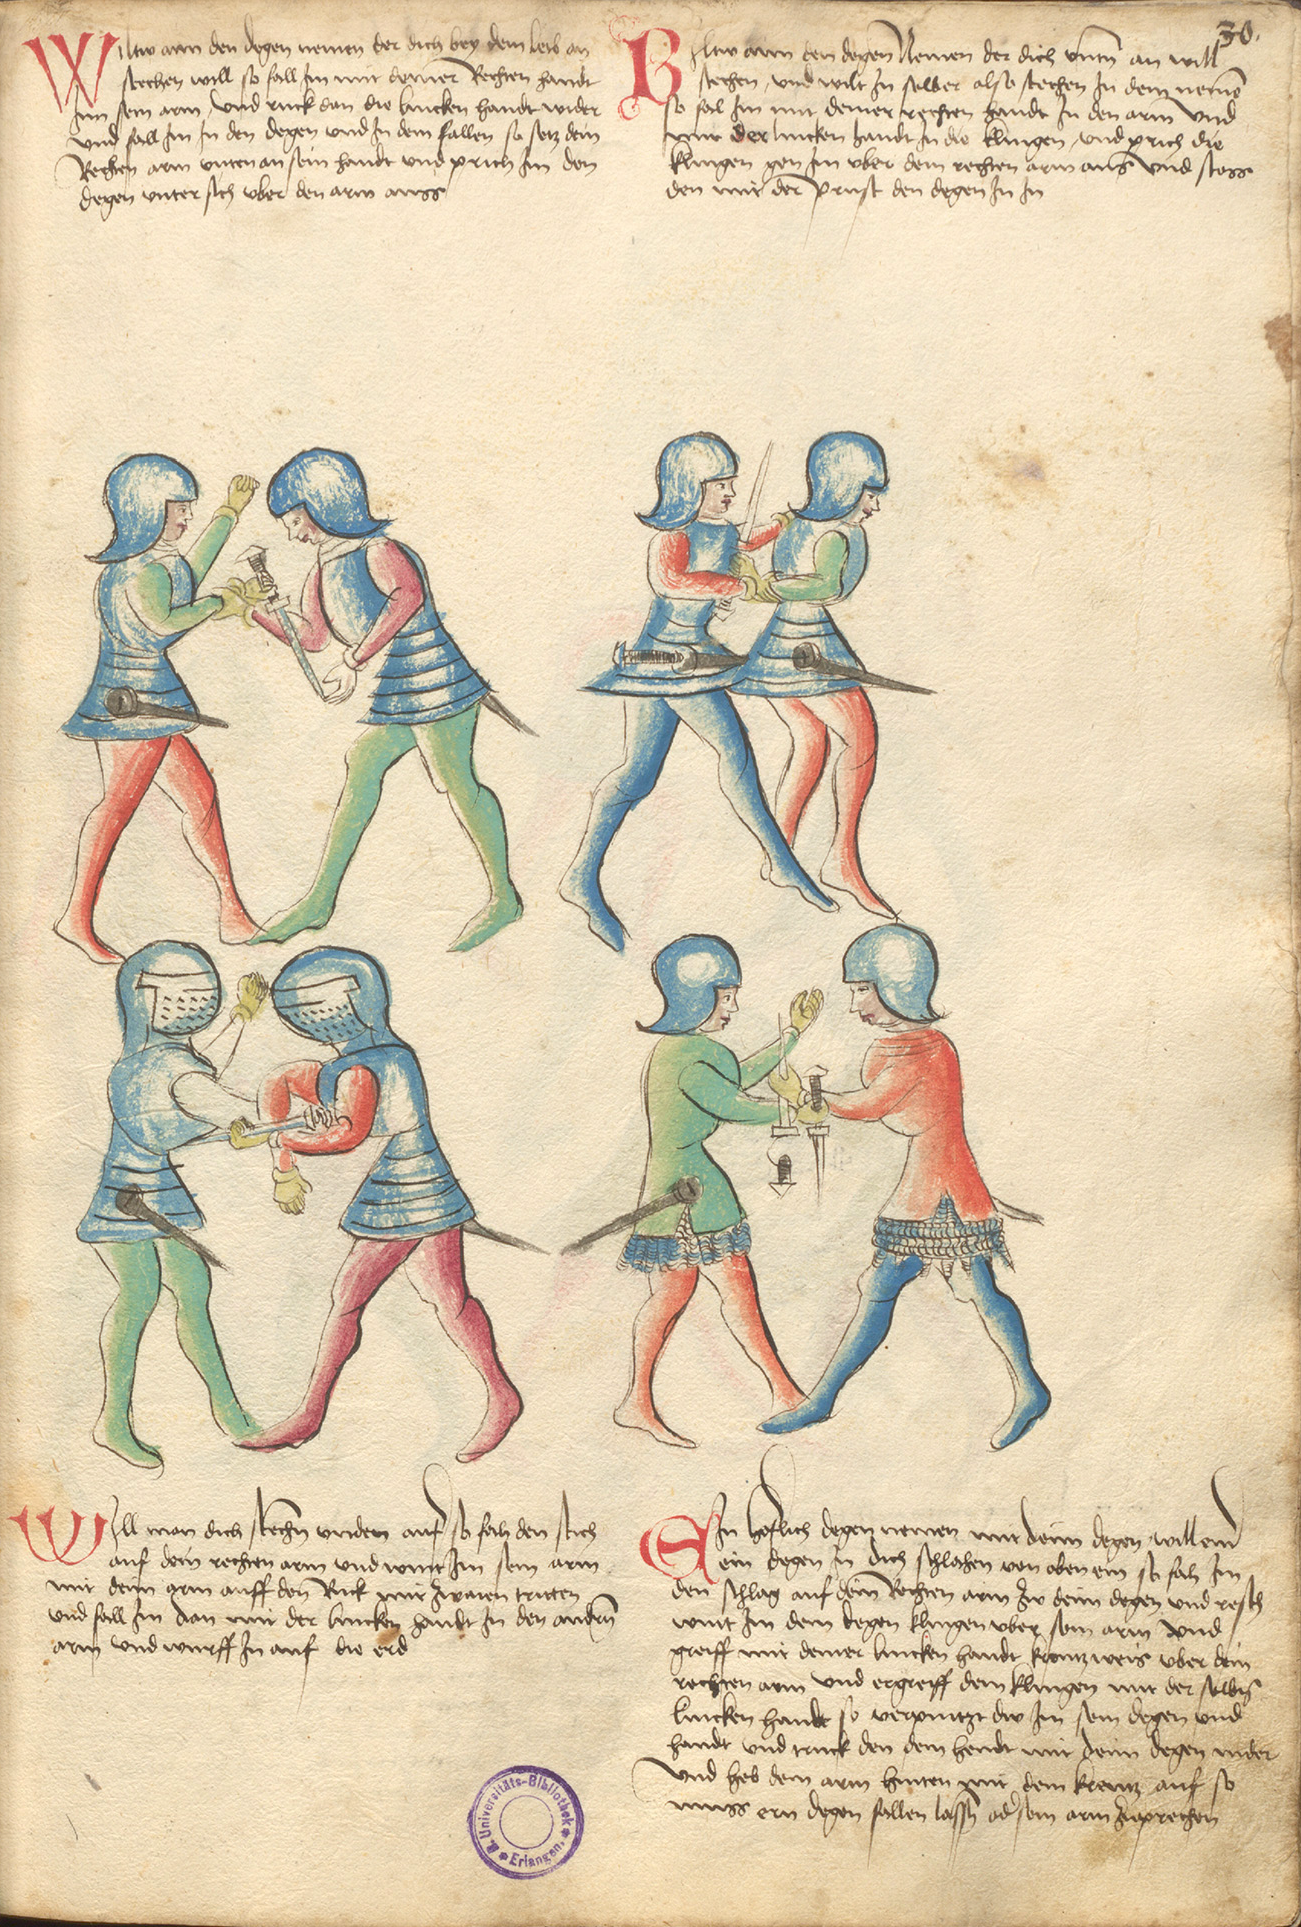 30.
Wiltw aim den degen nemen der dich bey dem leib an
stechen will so fall Im mit deiner Rechten handt
Inn sein arm, und ruck dan die lincken handt wider
und fall Im In den degen und In dem fallen so setz dein
Rechten arm unten an sein handt und prich Im den
degen unter sich vber den arm auss
Wiltw aim den degen Nemen der dich untn an will
stechen, und wilt In selber also stechen In dem nemen
so fal Im mit deiner rechten handt In den arm und
mit der lincken handt In die klingen, und prich die
klingen gen Im vber dein rechten arm aus und stoss
den mit der prust den degen In In
Will man dich stechn unden auf so fach den stich
auf dein rechten arm und wint Im sein arm
mit deim arm auff den Ruk mit zwaien tritten
und fall Im dan mit der lincken handt In den andern
arm und wurff In auf die erd
Ein hoflich degen nemen mit deim degen will einr
ein degen In dich schlahen von oben ein so fach Im
den schlag auf dein Rechten arm zw deim degen und resch
wint Im dein degen klingen vber sein arm und
greiff mit deiner lincken handt kreutzweis vber dein
rechten arm und ergreiff dein klingen mit der selbn
lincken handt so verpintzt dw Im sein degen und
handt und truck den dein hendt mit deim degen nider
und heb dein arm hinten mit dem kreutz auf so
muss ern degen fallen lassn od sein arm zuprechen
B. Universitäts-Bibliothek
Erlangen.